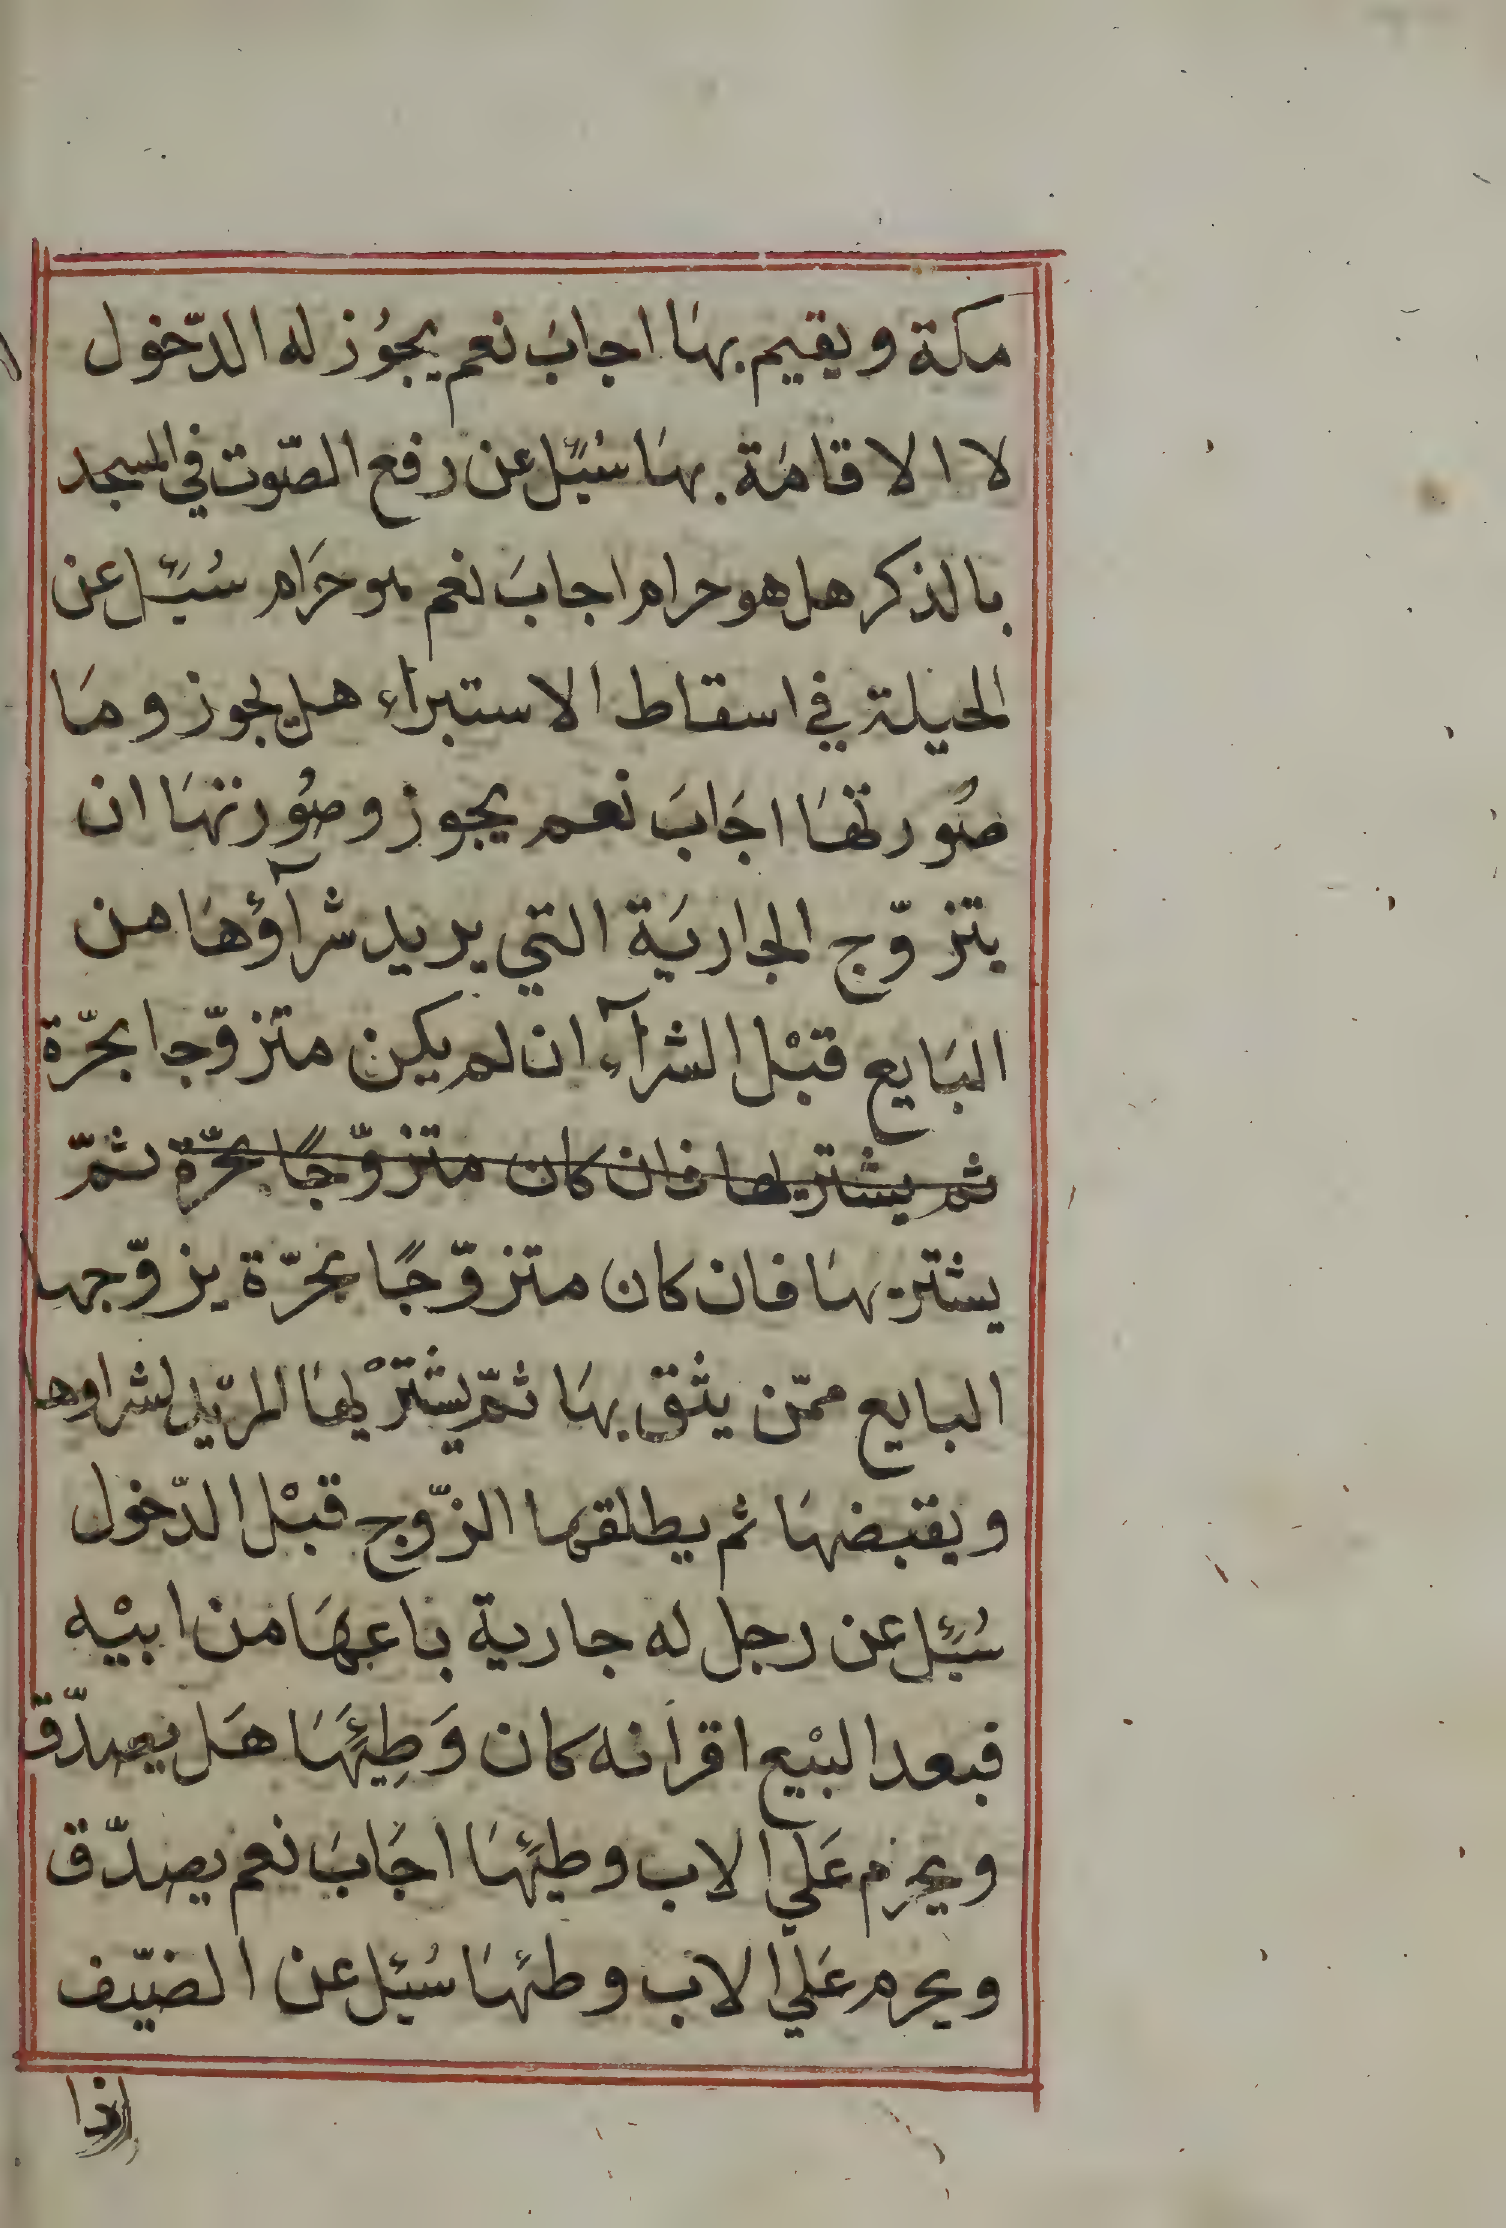 مكة ويقيم بهَا اجابَ نعم يجوُز له الدّخول
لا الاقامَة بهَا سُئِل عن رفع الصّوت في المسجد
بالذكر هل هو حرام اجابَ نعم هو حَرَام سُئِل عن
الحيلة في اسقاط الاستبراء هل يجوز ومَا
صُورتهَا اجَابَ نعم يجوز وصُورتهَا ان
يتزوّج الجاريَة التي يريد شرآؤهَا من
البَايع قبْل الشرآء ان لم يكن متزوّجا بحرّة
ثم يشتريها فان كان متزوّجًا بحرّة ثمّ
يشتريهَا فان كان متزوّجًا بحرّة يزوّجها
البايع ممّن يثق بهَا ثمّ يشتريْهَا المريد لشراوها
ويقبضهَا ثم يطلقها الزّوج قبْل الدّخول
سُئِل عن رجل له جارية باعهَا من ابيْه
فبعد البيْع اقرانه كان وَطِئَهَا هَل يصدّق
ويحرم عَلي الاب وطيئهَا اجَابَ نعم يصدّق
ويحرم عَلي الاب وطئهَا سُئِل عن الضيّف
اذا